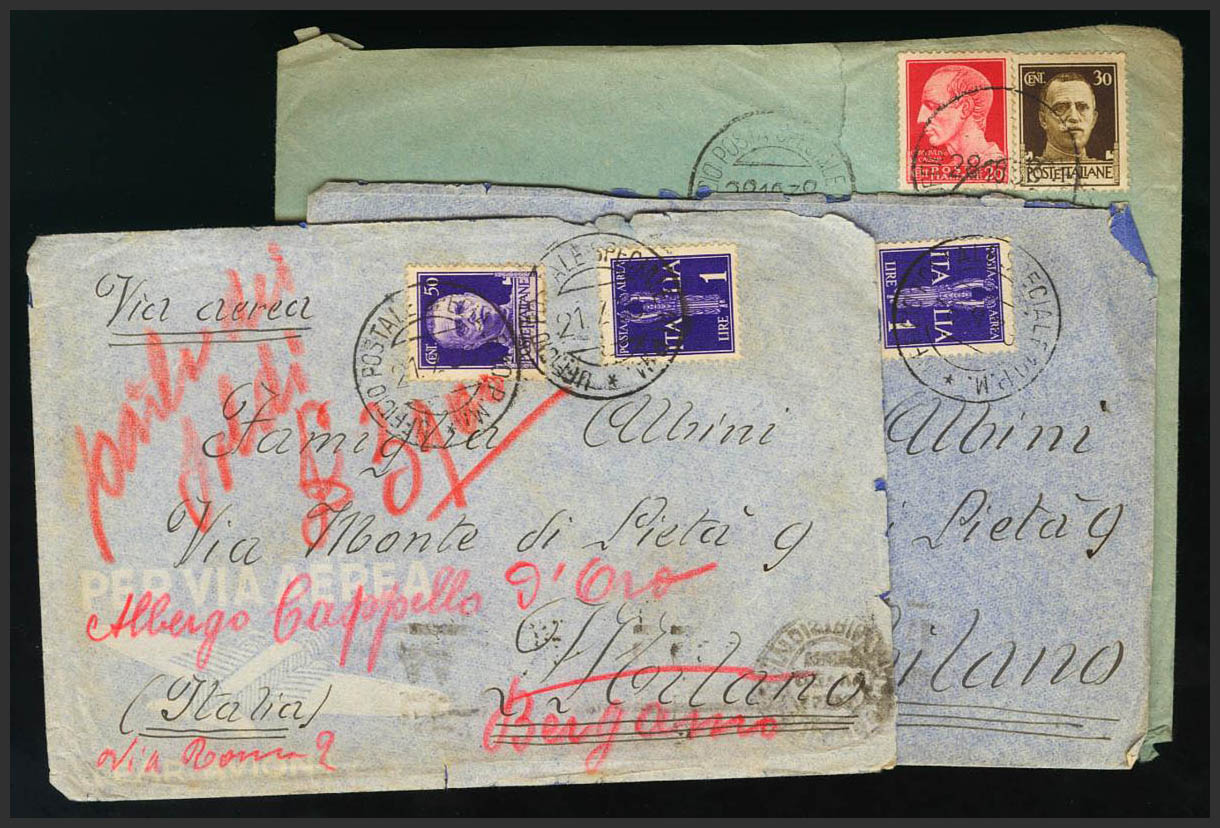 CENT. 30
POSTE ITALIANE
UFFICIO POSTA SPECIALE
28
POSTA AEREA
ITALIA
LIRE 1
SPECIALE
P.M. *
Albini
Pietà 9
Milano
Via aerea
CENT. 50
POSTE ITALIANE
UFFICIO POSTALE
21
POSTA AEREA
ITALIA
LIRE 1
UFFICIO
21
Famiglia Albini
Via Monte di Pietà 9
PER VIA AEREA
Albergo Cappello D'Oro
Milano
(Italia)
Bergamo
Via Roma 2